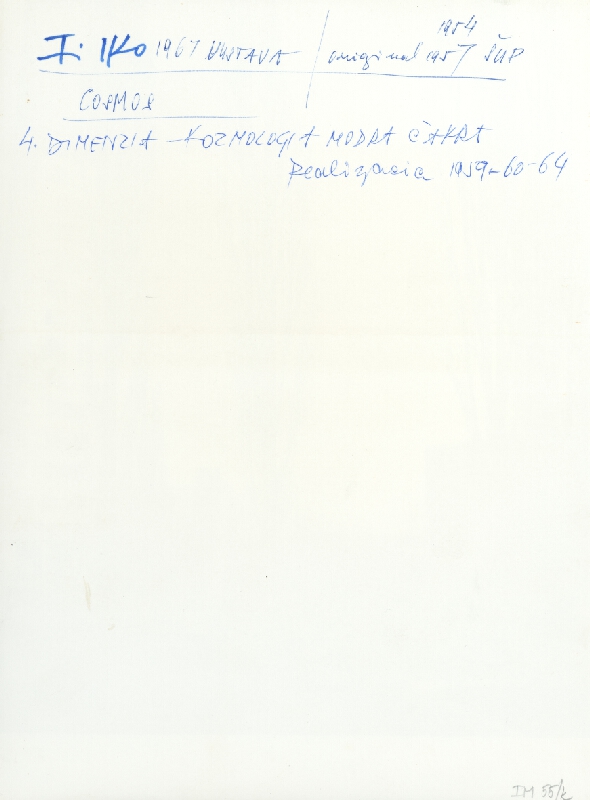 1954
I. IKO 1967 VÝSTAVA / originál 1957 ŠUP
COSMOS
4. DIMENZIA - KOZMOLOGIA MODRA ČAKRA
Realizacia 1959-60-64
IM 55/k